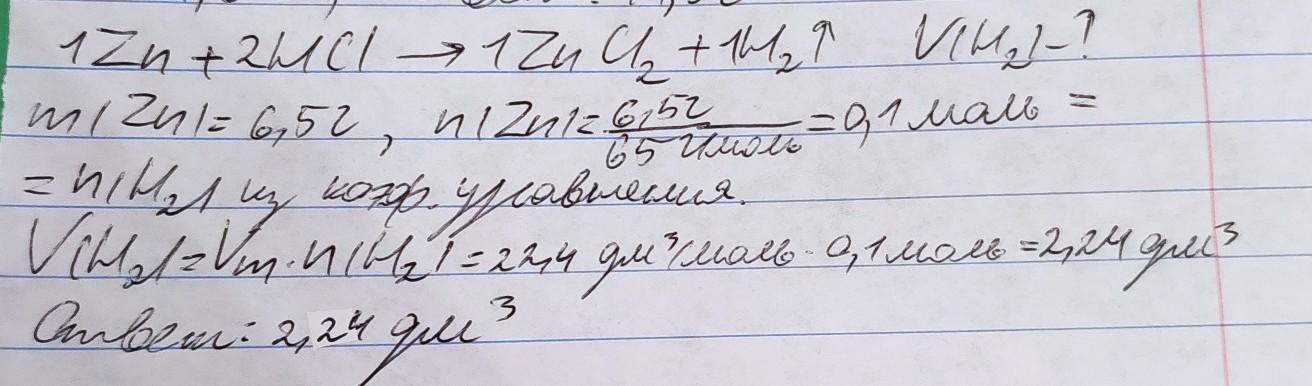 1Zn + 2HCl → 1ZnCl₂ + 1H₂↑ V(H₂)-?
m(Zn)= 6,5г, n(Zn)= 6,5г / 65 г/моль = 0,1 моль =
= n(H₂) из коэф. уравнения.
V(H₂)=Vm·n(H₂)=22,4 дм³/моль · 0,1 моль = 2,24 дм³
Ответ: 2,24 дм³